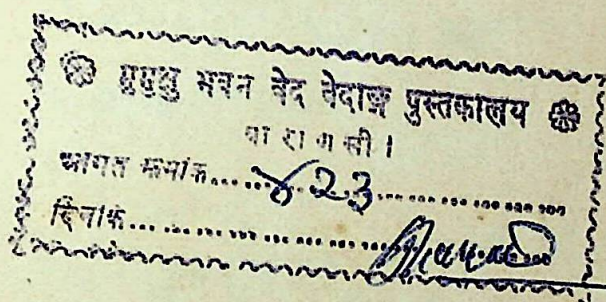 मुमुक्षु भवन वेद वेदाङ्ग पुस्तकालय
वा रा ण सी ।
आगत क्रमांक......823..................
दिनांक.......................